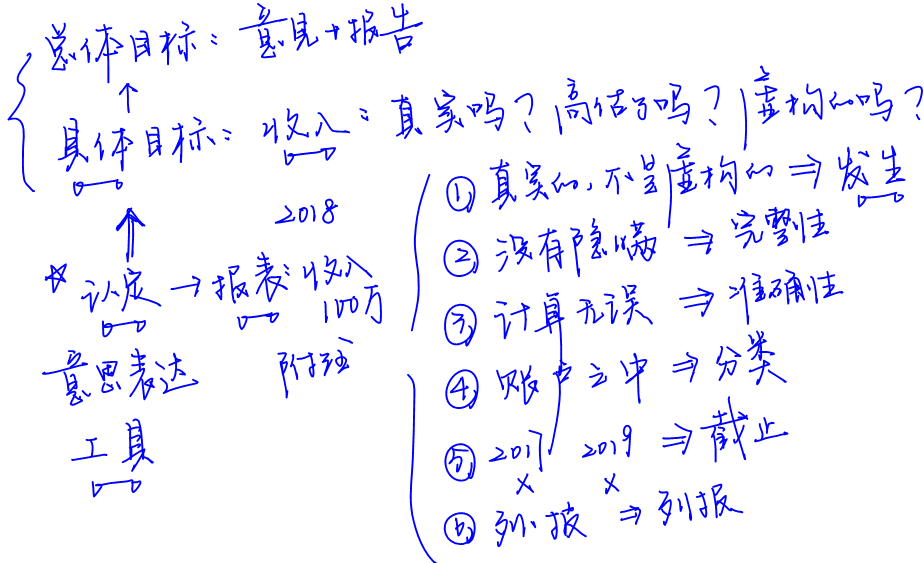 总体目标：意见+报告
↑
具体目标：收入：真实吗？高估了吗？虚构的吗？
⇑
2018
☆认定→报表：收入
100万
附注
意思表达
工具
①真实的，不是虚构的⇒发生
②没有隐瞒⇒完整性
③计算无误⇒准确性
④账户之中⇒分类
⑤2017 2019⇒截止
× ×
⑥列、披⇒列报